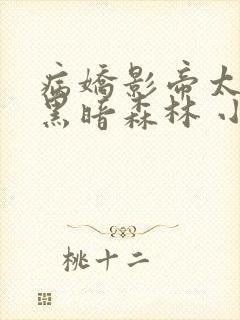 病嬌影帝太
黑暗森林 小
桃十二